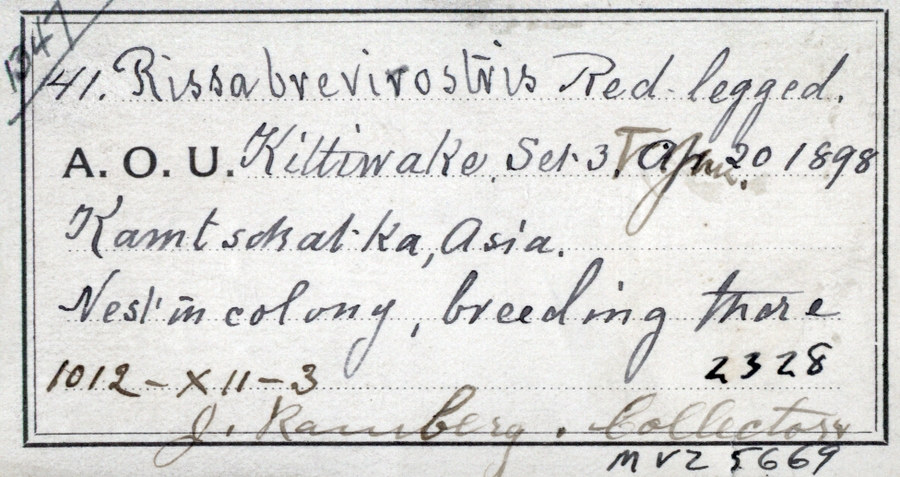 1347
41. Rissa brevirostris Red-legged.
A. O. U. Kittiwake. Set 3. 20 1898
Kamtschatka, Asia.
Nest in colony, breeding there
1012-XII-3 2328
J. Ramberg. Collector
MVZ 5669